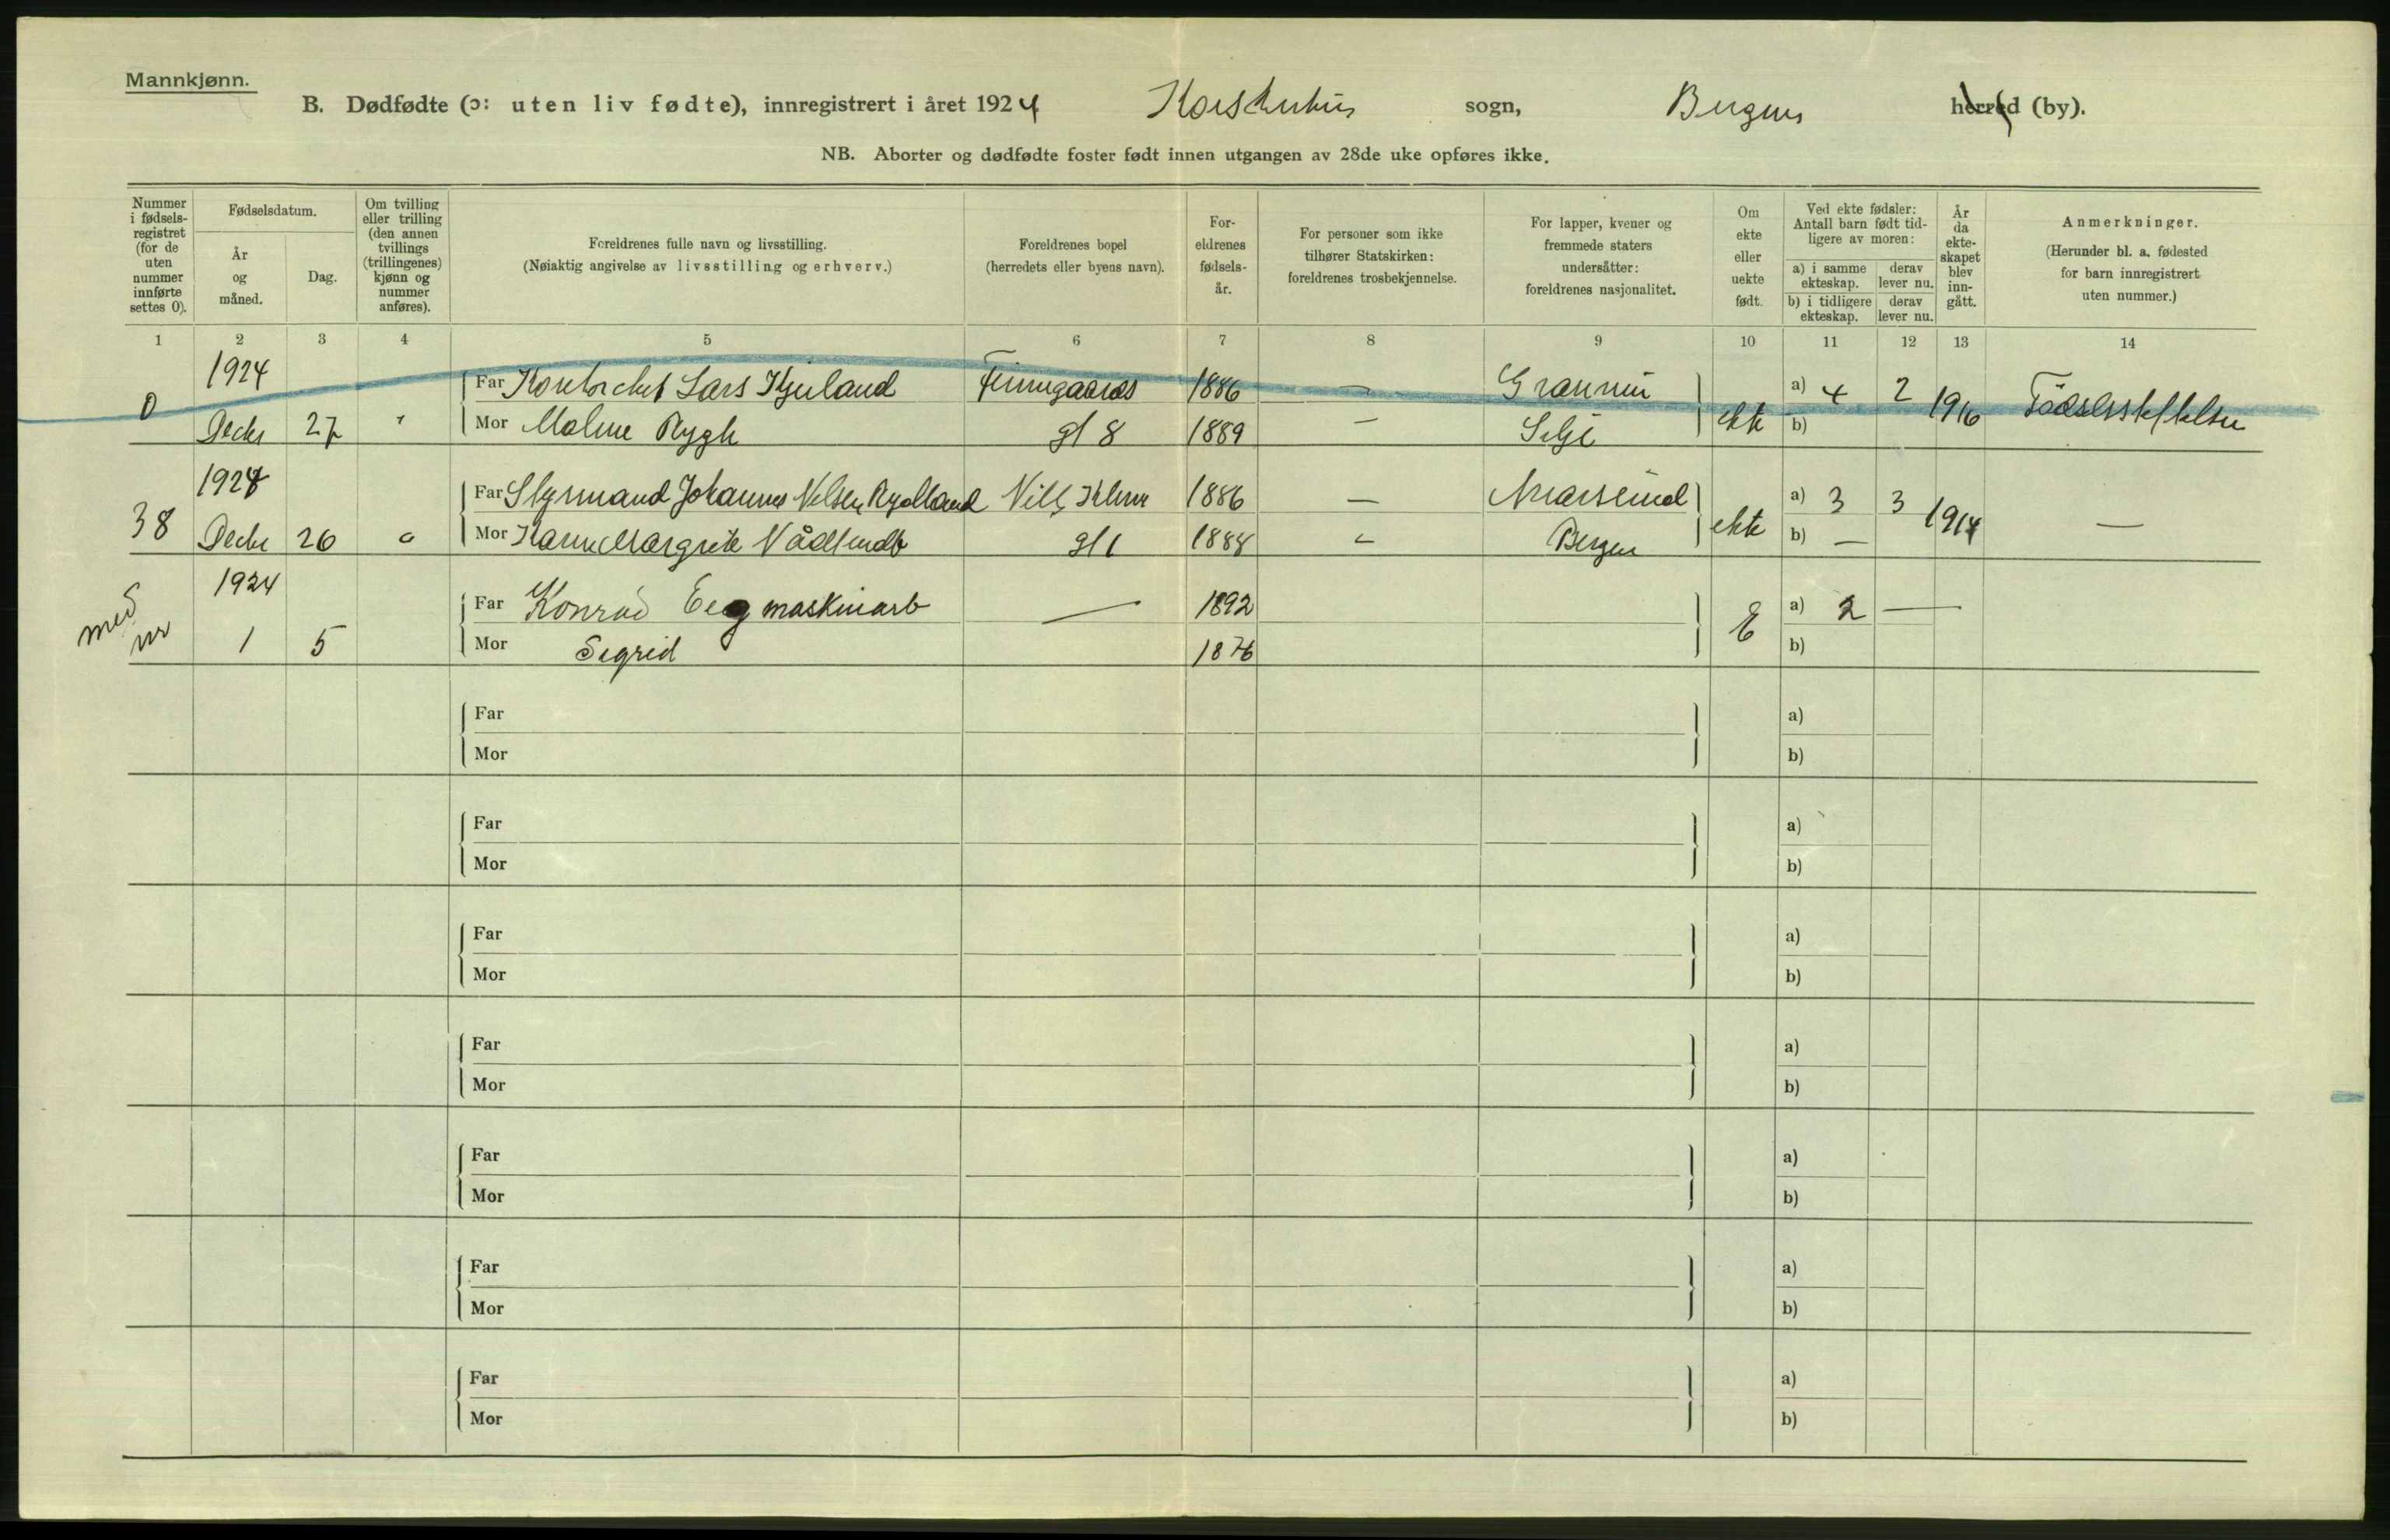 Mannkjønn.
B. Dødfødte (ɔ: uten liv fødte), innregistrert i året 1924 sogn, Bergens herred (by).
NB. Aborter og dødfødte foster født innen utgangen av 28de uke opføres ikke.
Nummer i fødsels-registret (for de uten nummer innførte settes 0).
Fødselsdatum.
År og måned.
Dag.
Om tvilling eller trilling (den annen tvillings (trillingenes) kjønn og nummer anføres).
Foreldrenes fulle navn og livsstilling.
(Nøiaktig angivelse av livsstilling og erhverv.)
Foreldrenes bopel
(herredets eller byens navn).
For-eldrenes fødsels-år.
For personer som ikke tilhører Statskirken: foreldrenes trosbekjennelse.
For lapper, kvener og fremmede staters undersåtter: foreldrenes nasjonalitet.
Om ekte eller uekte født.
Ved ekte fødsler: Antall barn født tid-ligere av moren:
a) i samme ekteskap.
derav lever nu.
b) i tidligere ekteskap.
derav lever nu.
År da ekte-skapet blev inn-gått.
Anmerkninger.
(Herunder bl. a. fødested for barn innregistrert uten nummer.)
1 2 3 4 5 6 7 8 9 10 11 12 13 14
1924
Far Lars 1886 — a) 4 2
0 Decbr 27 " Mor Rygh gt 8 1889 — Selje ekte b) 1916
1924
Far Styrmand Johannes 1886 — a) 3 3
38 Decbr 26 Mor Margrete gt 1 1888 Bergen ekte b) — 1914 —
1924
med nr
Far Konrad Eeg maskinarb — 1892 a) 2 —
1 5 Mor Sigrid 1876 E b)
Far a)
Mor b)
Far a)
Mor b)
Far a)
Mor b)
Far a)
Mor b)
Far a)
Mor b)
Far a)
Mor b)
Far a)
Mor b)